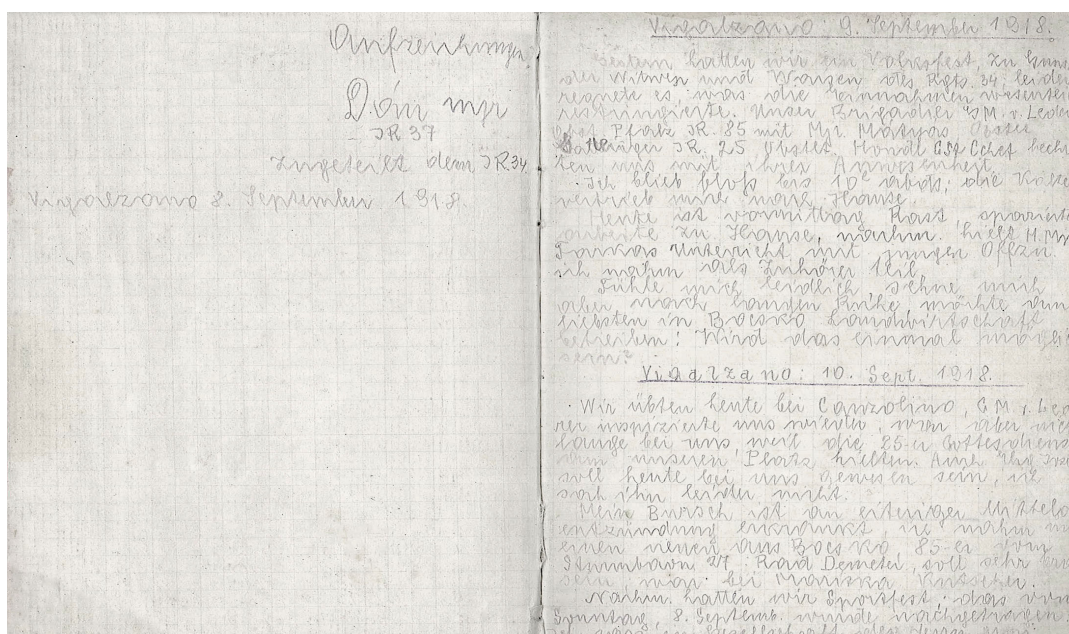 Aufzeichnungen
Dón mjr
IR 37
zugeteilt dem IR 34
Vigalzano 8. September 1918.
Vigalzano 9. September 1918.
Gestern hatten wir ein Volksfest, zu
der Witwen und Waisen des Rgts. 34, leider
regnete es, was die Einnahmen
restringierte. Unser Brigadier GM. v.
IR. 85 mit Mjr. Matyas
IR. 25 Obstlt.
ten uns mit ihrer Anwesenheit.
Ich blieb bloß bis 10h abds, die Kälte
vertrieb mich nach Hause.
Heute ist vormittag Rast,
arbeite zu Hause, nachm. hielt
Farkas Unterricht mit jungen Offzn.
ich nahm als Zuhörer teil.
Fühle mich leidlich, sehne mich
aber nach langer Ruhe, möchte am
liebsten in Bocskó Landwirtschaft
betreiben! Wird das einmal
sein?
Vigalzano: 10. Sept. 1918.
Wir übten heute bei Canzolino, GM. v.
rer inspizierte uns wieder, war aber
lange bei uns weil die 25-er
am unseren Platz hielten. Auch
soll heute bei uns gewesen sein, ich
sah ihn leider nicht.
Mein Bursch ist an eitriger
entzündung erkrankt, ich nahm
einen neuen aus Bocskó, 85-er vom
Sturmbaon 27. Rad Demeter, soll sehr
sein, war bei Mariska
Nachm. hatten wir Sportfest, das vom
Sonntag, 8. Septemb. wurde nachgetragen.